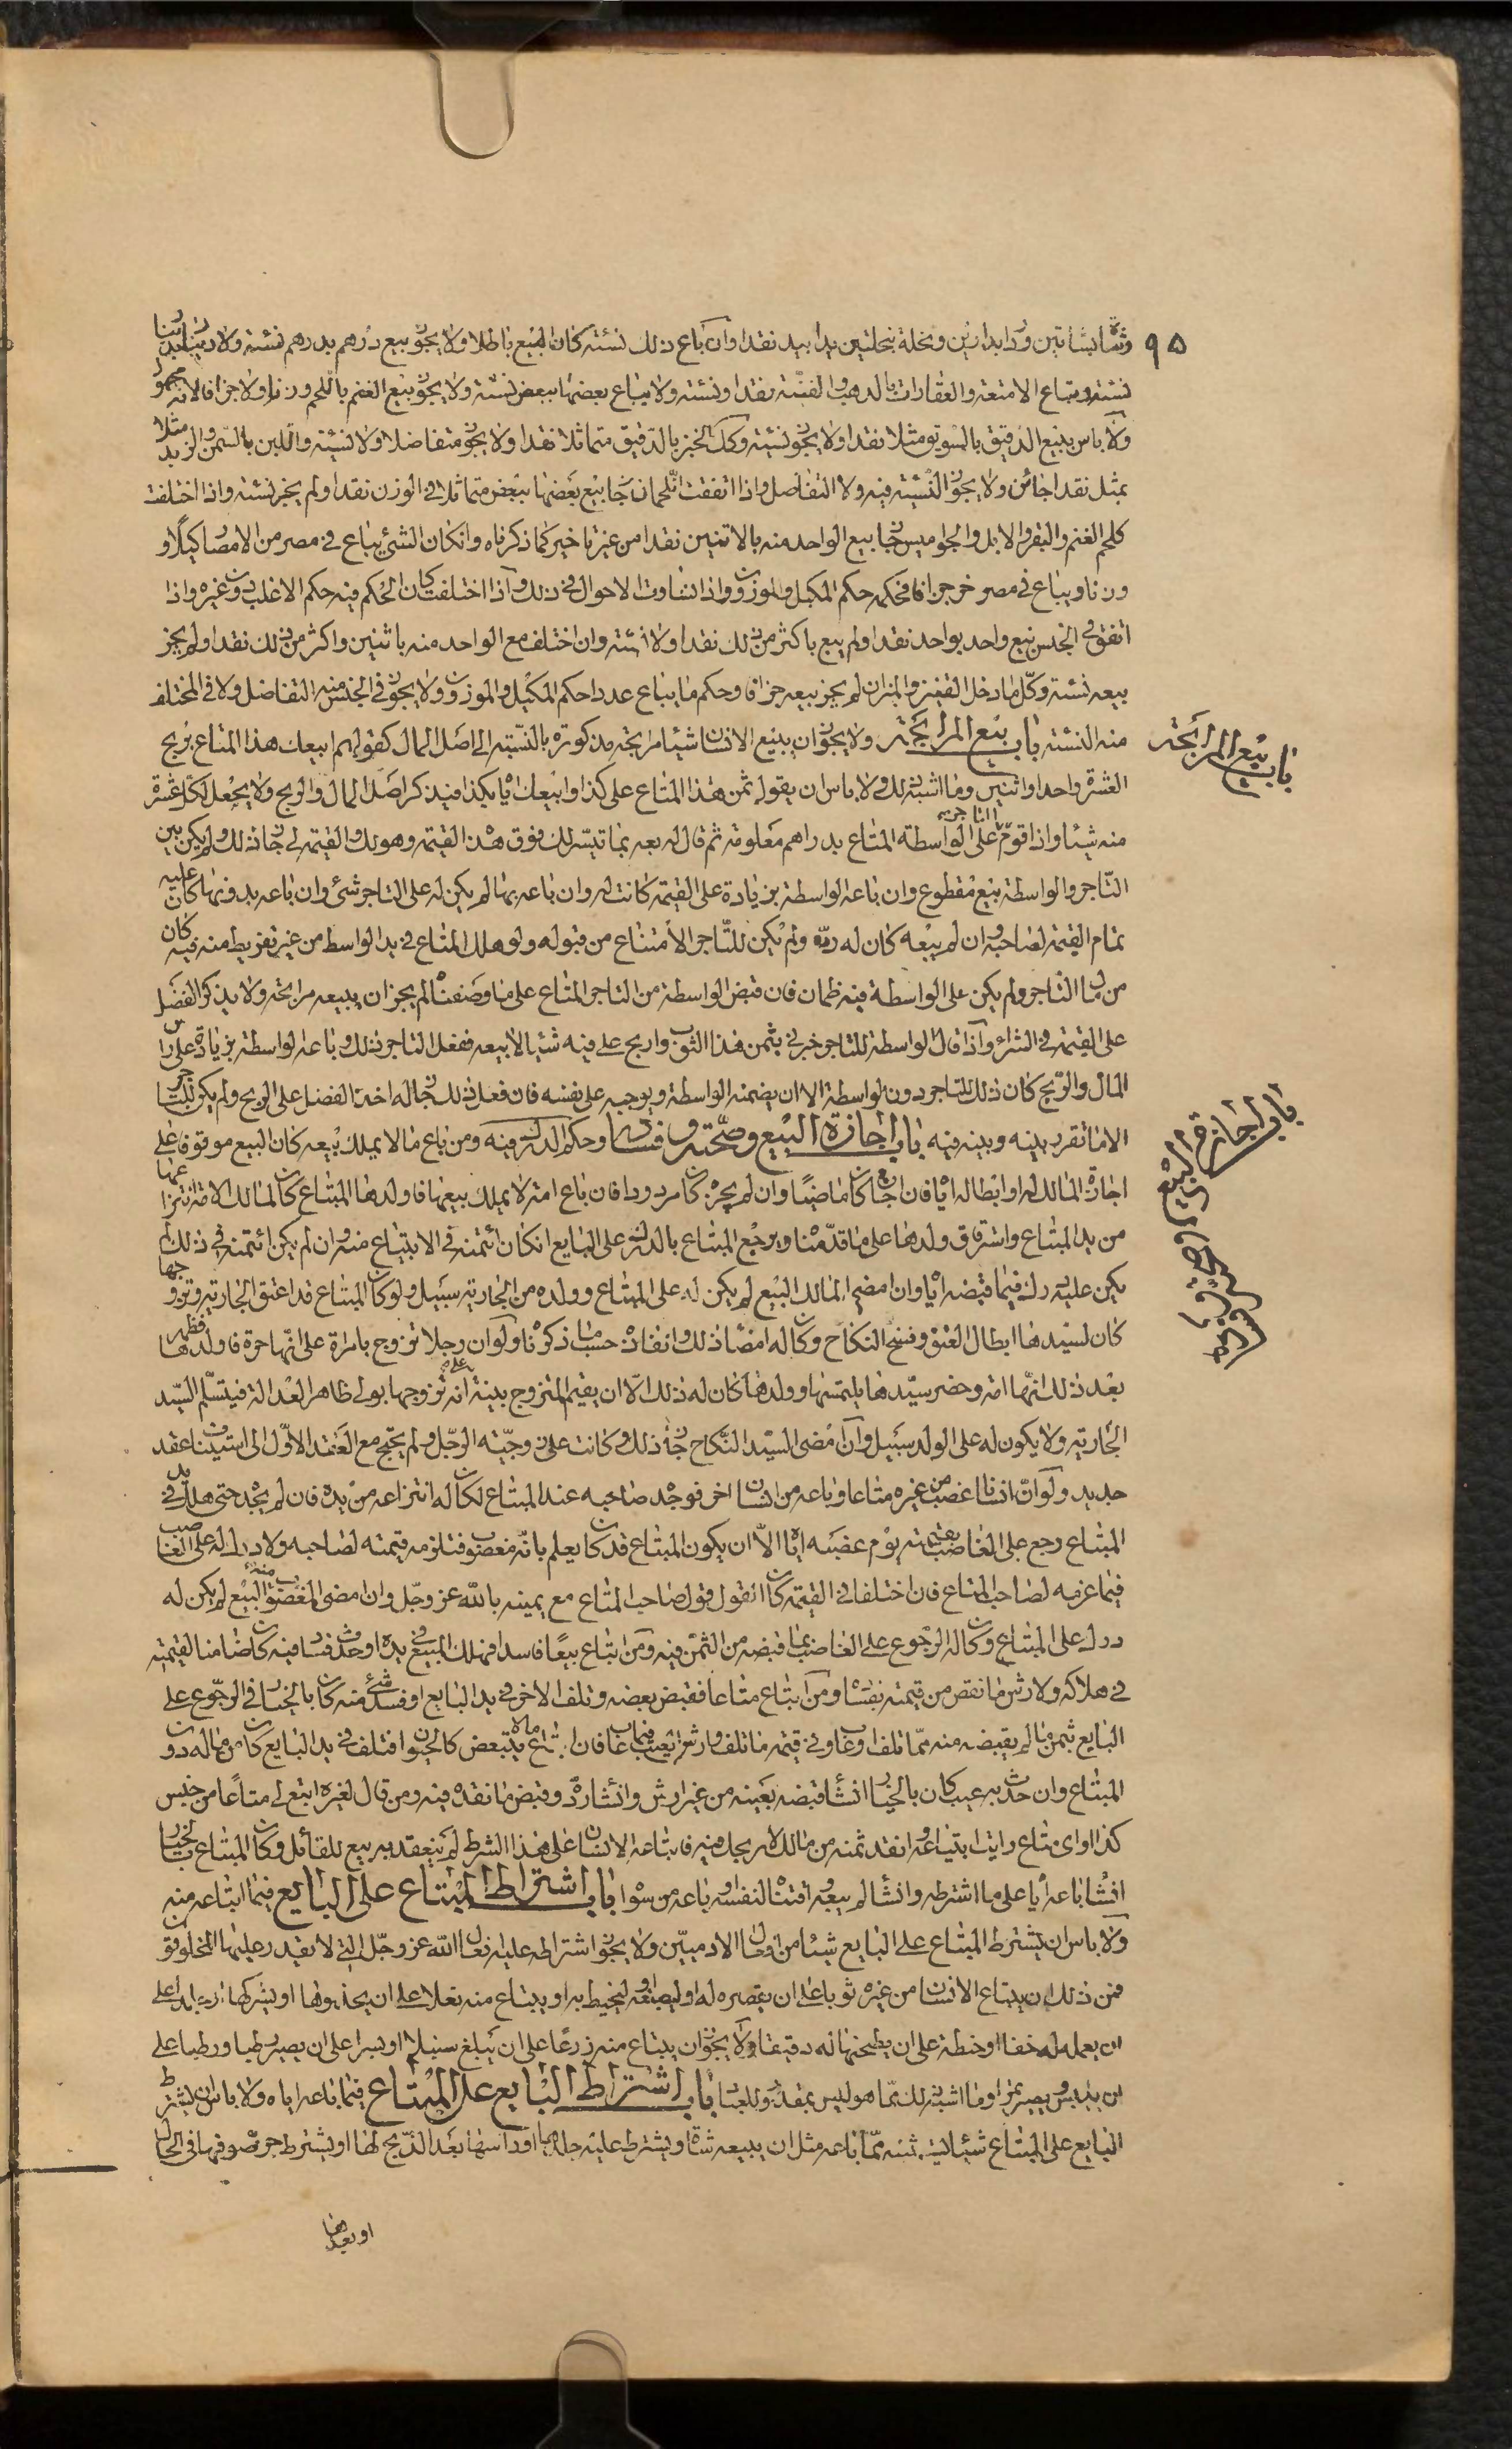 ٩٥
وشاة بشاتين ودار بدارين ونخلة بنخلتين يدا بيد نقدا وان باع ذلك نسئة كان البيع باطلا ولا يجوز بيع درهم بدرهم نسئة ولا دينار بدينار
نسئة ويباع الامتعة والعقارات بالذهب والفضة نقدا ونسئة ولا يباع بعضها ببعض نسئة ولا يجوز بيع الغنم باللحم وزنا ولا جزافا لانه مجهول
ولا باس ببيع الدقيق بالسويق مثلا نقدا ولا يجوز نسئة وكك الخبز بالدقيق متماثلا نقدا ولا يجوز متفاضلا ولا نسيئة واللبن بالسمن والزبد مثلا
بمثل نقدا جائز ولا يجوز النسيئة فيه ولا التفاضل واذا اتفقت اللحمان جاز بيع بعضها ببعض متماثلا في الوزن نقدا ولم يجز نسئة واذا اختلفت
كلحم الغنم والبقر والابل والجواميس جاز بيع الواحد منه بالاثنين نقدا من غير تاخير كما ذكرناه وان كان الشئ يباع في مصر من الامصار كيلا و
وزنا ويباع في مصر اخر جزافا فحكمه حكم المكيل والموزون واذا تساوت الاحوال في ذلك واذا اختلفت كان الحكم فيه حكم الاغلب دون غيره واذا
اتفق في الجنس بيع واحد بواحد نقدا ولم يبع باكثر من ذلك نقدا ولا نسئة وان اختلف بيع الواحد منه باثنين واكثر من ذلك نقدا ولم يجز
بيعه نسئة وكل ما دخل القفيز والميزان لم يجز بيعه جزافا وحكم ما يباع عددا حكم المكيل والموزون ولا يجوز في الجنس منه التفاضل ولا في المختلف
منه النسئة باب بيع المرابحة ولا يجوز ان يبيع الانسان شيئا مرابحة مذكورة بالنسبة الى اصل المال كقولهم ابيعك هذا المتاع بربح
باب بيع المرابحة
العشرة واحدا واثنين وما اشبه ذلك ولا باس ان يقول ثمن هذا المتاع على كذا وابيعك اياه بكذا فيذكر اصل المال والربح ولا يجعل لكل عشرة
منه شيئا واذا قوم التاجر على الواسطة المتاع بدراهم معلومة ثم قال له بعه بما تيسر لك فوق هذه القيمة وهو لك والقيمة لي جاز ذلك ولم يكن بين
التاجر والواسطة بيع مقطوع وان باعه الواسطة بزيادة على القيمة كانت له وان باعه بها لم يكن له على التاجر شئ وان باعه بدونها كان عليه
تمام القيمة لصاحبه وان لم يبعه كان له رده ولم يكن للتاجر الامتناع من قبوله ولو هلك المتاع في يد الواسطة من غير تفريط منه فيه كان
من مال التاجر ولم يكن على الواسطة فيه ضمان فان قبض الواسطة من التاجر المتاع على ما وصفناه لم يجز ان يبيعه مرابحة ولا يذكر الفضل
على القيمة في الشراء واذا قال الواسطة للتاجر خبرني بثمن هذا الثوب واربح علي فيه شيئا لابيعه ففعل التاجر ذلك وباعه الواسطة بزيادة على راس
المال والربح كان ذلك للتاجر دون الواسطة الا ان يضمنه الواسطة ويوجبه على نفسه فان فعل ذلك جاز له اخذ الفضل على الربح ولم يكن للتاجر
الا ما تقرر بينه وبينه فيه باب اجازة البيع وصحته وفساده وحكم الدرك فيه ومن باع ما لا يملك بيعه كان البيع موقوفا على
باب اجازة البيع وصحته وفساده
اجازة المالك له او ابطاله اياه فان اجازه كان ماضيا وان لم يجزه كان مردودا فان باع امة لا يملك بيعها فاولدها المبتاع كان لمالك الامة انتزاعها
من يد المبتاع واسترقاق ولدها على ما قدمناه ويرجع المبتاع بالدرك على البايع ان كان ائتمنه في الابتياع منه وان لم يكن ائتمنه في ذلك لم
يكن عليه درك فيما قبضه اياه وان امضى المالك البيع لم يكن له على المبتاع وولده من الجارية سبيل ولو كان المبتاع قد اعتق الجارية وتزوجها
كان لسيدها ابطال العتق وفسخ النكاح وكان له امضاء ذلك وانفاذه حسب ما ذكرناه ولو ان رجلا تزوج بامراة على انها حرة فاولدها فظهر
بعد ذلك انها امة وحضر سيدها يلتمسها وولدها كان له ذلك الا ان يقيم المتزوج بينة انه تزوجها بولي ظاهر العدالة فيتسلم السيد
الجارية ولا يكون له على الولد سبيل وان امضى السيد النكاح جاز ذلك وكانت على زوجية الرجل ولم يحتج مع العقد الاول الى استيناف عقد
جديد ولو ان انسانا غصب من غيره متاعا وباعه من انسان اخر فوجده صاحبه عند المبتاع لكان له انتزاعه من يده فان لم يجده حتى هلك في يد
المبتاع رجع على الغاصب بقيمته يوم غصبه اياه الا ان يكون المبتاع قد كان يعلم بانه مغصوب فتلزمه قيمته لصاحبه ولا درك له على الغاصب
فيما غرمه لصاحب المتاع فان اختلفا في القيمة كان القول قول صاحب المتاع مع يمينه بالله عز وجل وان امضى المغصوب منه البيع لم يكن له
درك على المبتاع وكان له الرجوع على الغاصب بما قبضه من الثمن فيه ومن ابتاع بيعا فاسدا فهلك المبيع في يده او حدث فساد فيه كان ضامنا لقيمته
في هلاكه ولارش ما نقص من قيمته بفساده ومن ابتاع متاعا فقبض بعضه وتلف الاخر في يد البايع او فسد شئ منه كان بالخيار في الرجوع على
البايع بثمن ما لم يقبضه منه مما تلف
المبتاع وان حدث به عيب كان بالخيار ان شاء قبضه بعينه من غير ارش وان شاء رده وقبض ما نقده فيه ومن قال لغيره ابتع لي متاعا من جنس
كذا او اي متاع رايت ابتياعه وانقد ثمنه من مالك لاربحك فيه فابتاعه الانسان على هذا الشرط لم ينعقد به بيع للقائل وكان المبتاع بالخيار
ان شاء باعه اياه على ما اشترطه وان شاء لم يبعه واقتناه لنفسه او باعه من سواه باب اشتراط المبتاع على البايع فيما ابتاعه منه
ولا باس ان يشترط المبتاع على البايع شيئا من افعال الادميين ولا يجوز اشتراطه عليه فعال الله عز وجل التي لا يقدر عليها المخلوقون
فمن ذلك ان يبتاع الانسان من غيره ثوبا على ان يقصره له او يصبغه او ليخيطه او يبتاع منه نعلا على ان يحذوها او يشركها
ان يعمله له خفا او حنطة على ان يطحنها له دقيقا ولا يجوز ان يبتاع منه زرعا على ان يبلغ سنبلا او بسرا على ان يصير رطبا ورطبا على
ان ييبس ويصير تمرا وما اشبه ذلك مما هو ليس بمقدور للعباد باب اشتراط البايع على المبتاع فيما باعه اياه ولا باس ان يشترط
البايع على المبتاع شيئا يستثنيه مما باعه مثل ان يبيعه شاة ويشترط عليه جلدها او راسها بعد الذبح لها او يشترط جز صوفها في الحال
او بعدها